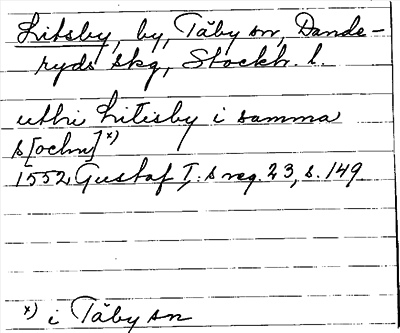 Litsby, by, Täby sn, Dande-
ryds skg, Stockh. l.
uthi Litisby i samma
s[ochn] x)
1552 Gustaf I:s reg. 23, s. 149
x) i Täby sn